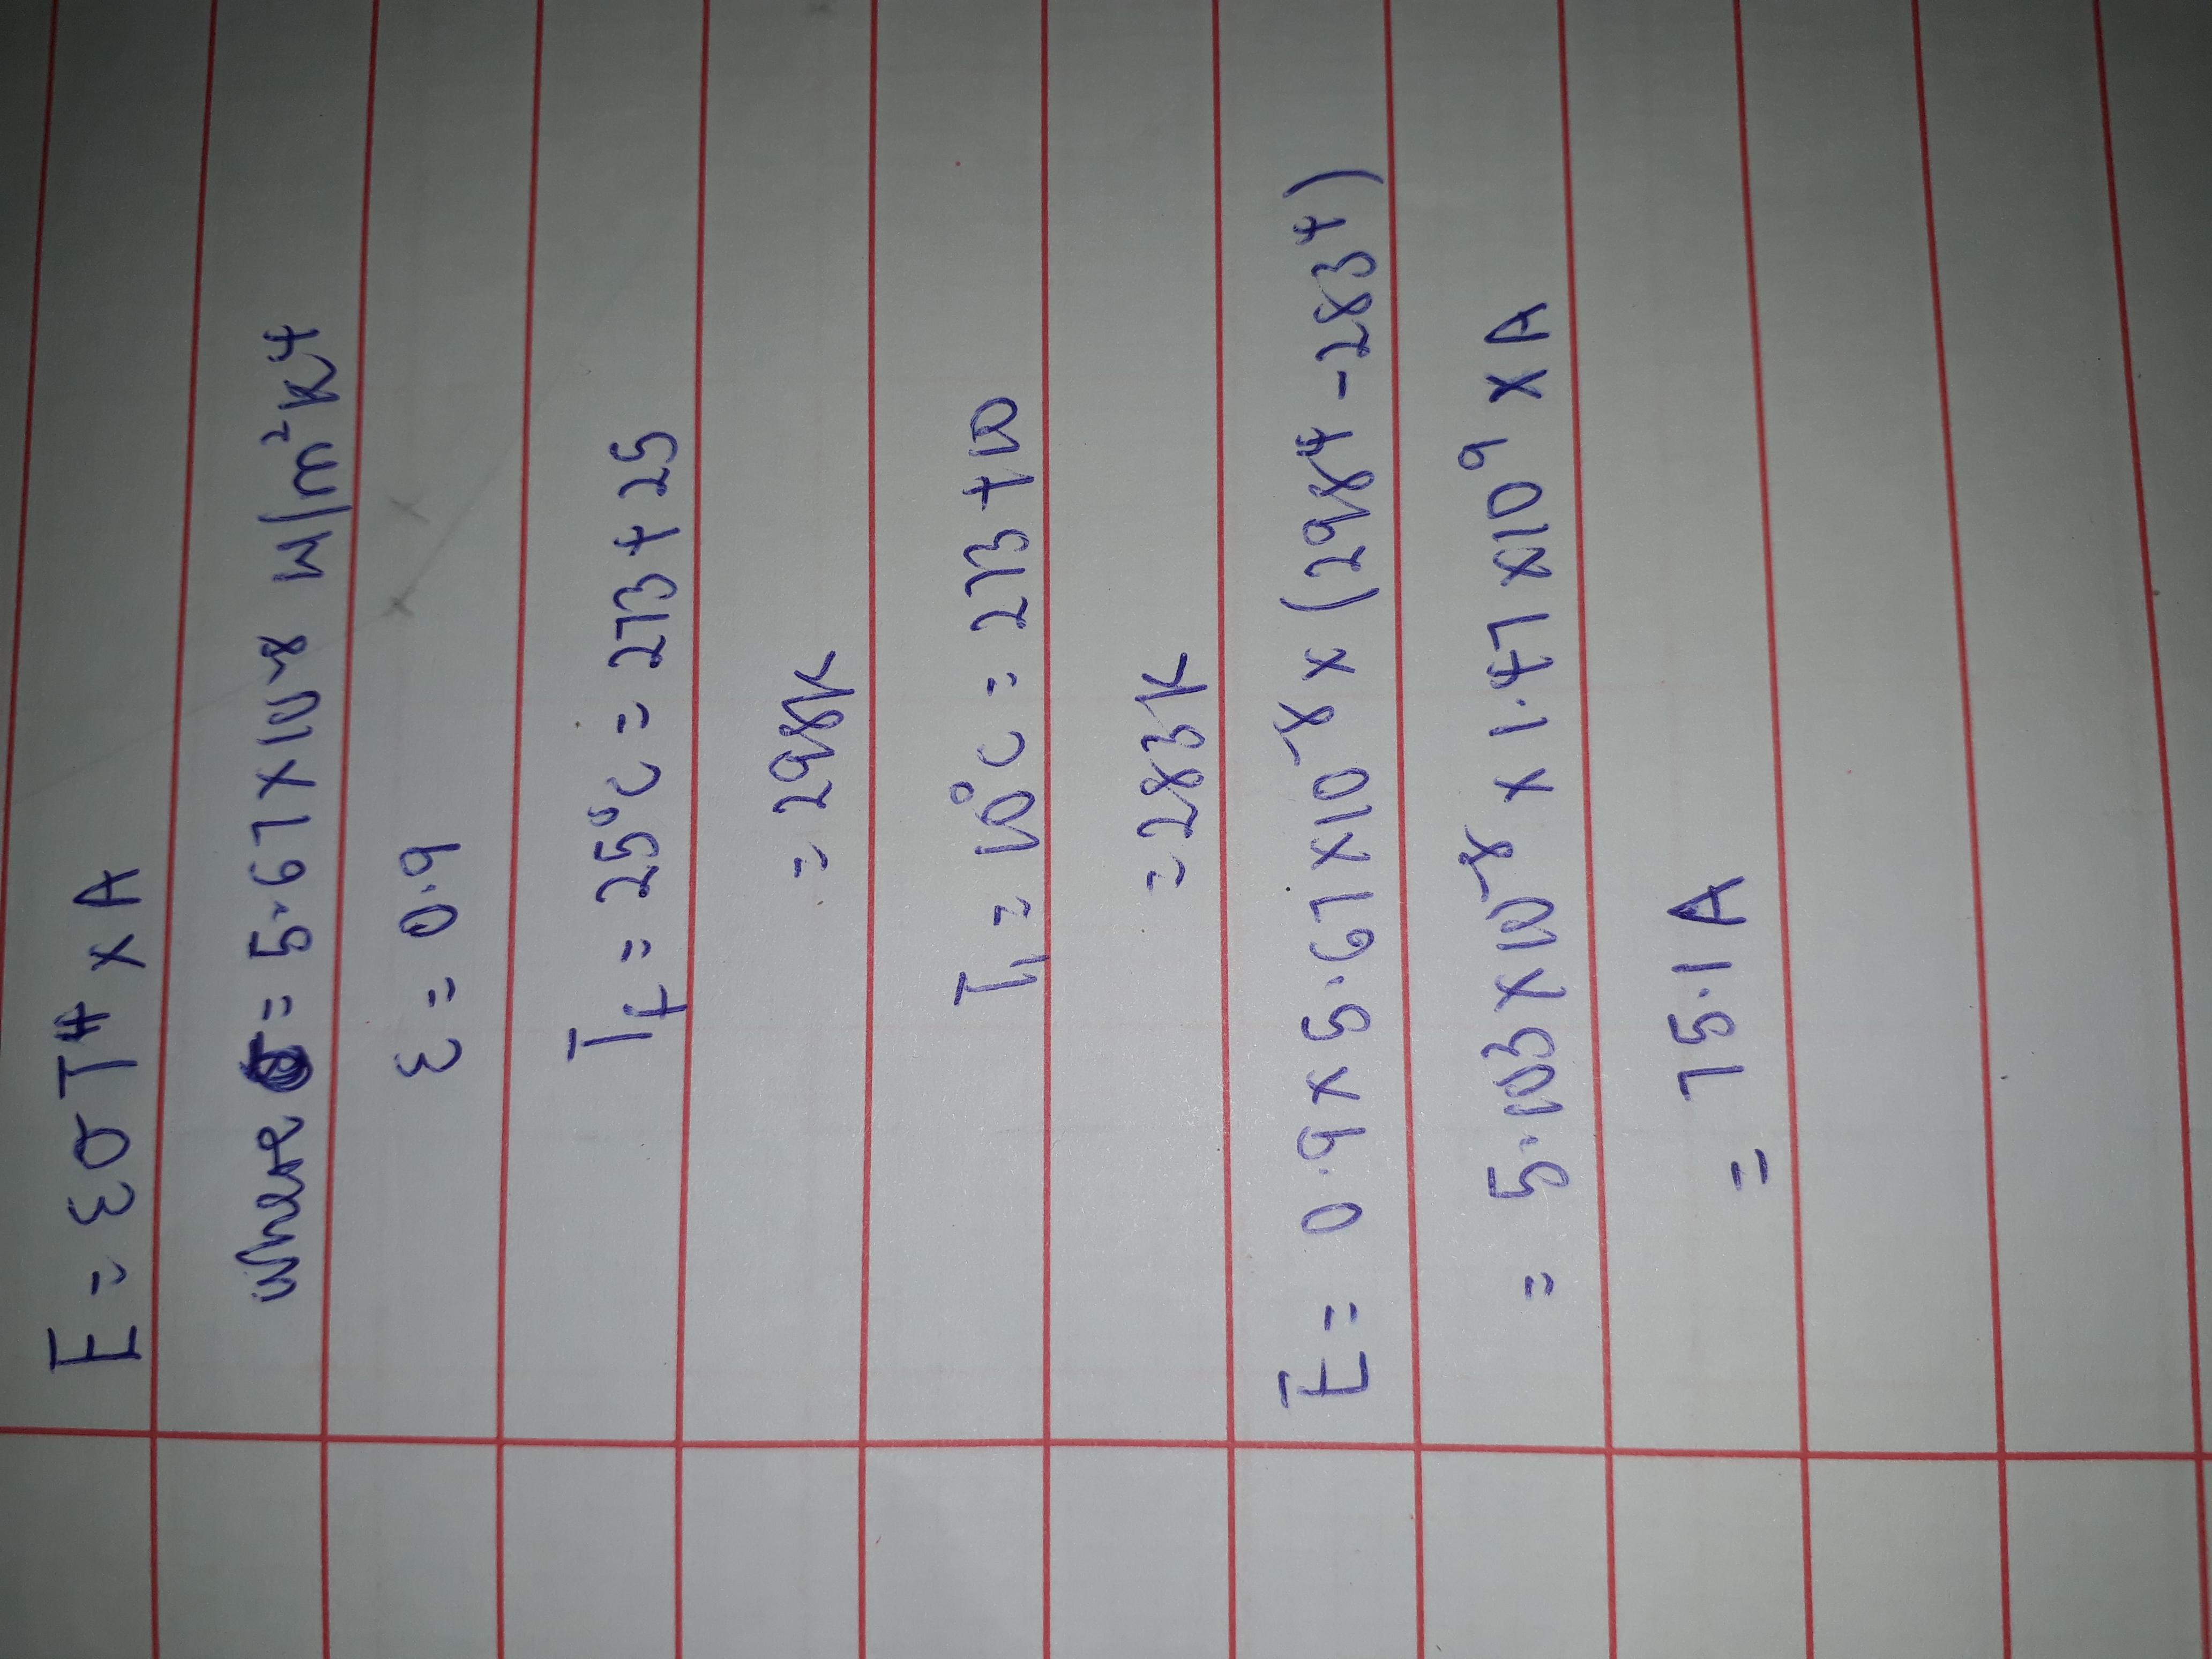 E = εσT⁴ × A
where σ = 5.67 × 10⁻⁸ W/m²K⁴
ε = 0.9
T_f = 25°C = 273 + 25
= 298K
T_i = 10°C = 273 + 10
= 283K
E = 0.9 × 5.67 × 10⁻⁸ × (298⁴ - 283⁴)
= 5.103 × 10⁻⁸ × 1.47 × 10⁹ × A
= 75.1 A